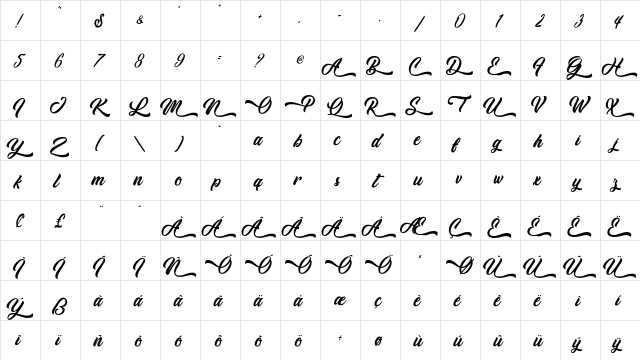 ! " $ & ' ( * , - . / 0 1 2 3 4
5 6 7 8 9 : ? @ A B C D E F G H
I J K L M N O P Q R S T U V W X
Y Z ( \ ) a b c d e f g h i j
k l m n o p q r s t u v w x y z
₵ £ ¨ À Á Â Ã Ä Å Æ Ç È É Ê Ë
Ì Í Î Ï Ñ Ò Ó Ô Õ Ö Ø Ù Ú Û Ü
Ý ß à á â ã ä å æ ç è é ê ë ì í
î ï ñ ò ó ô õ ö ø ù ú û ü ý ÿ